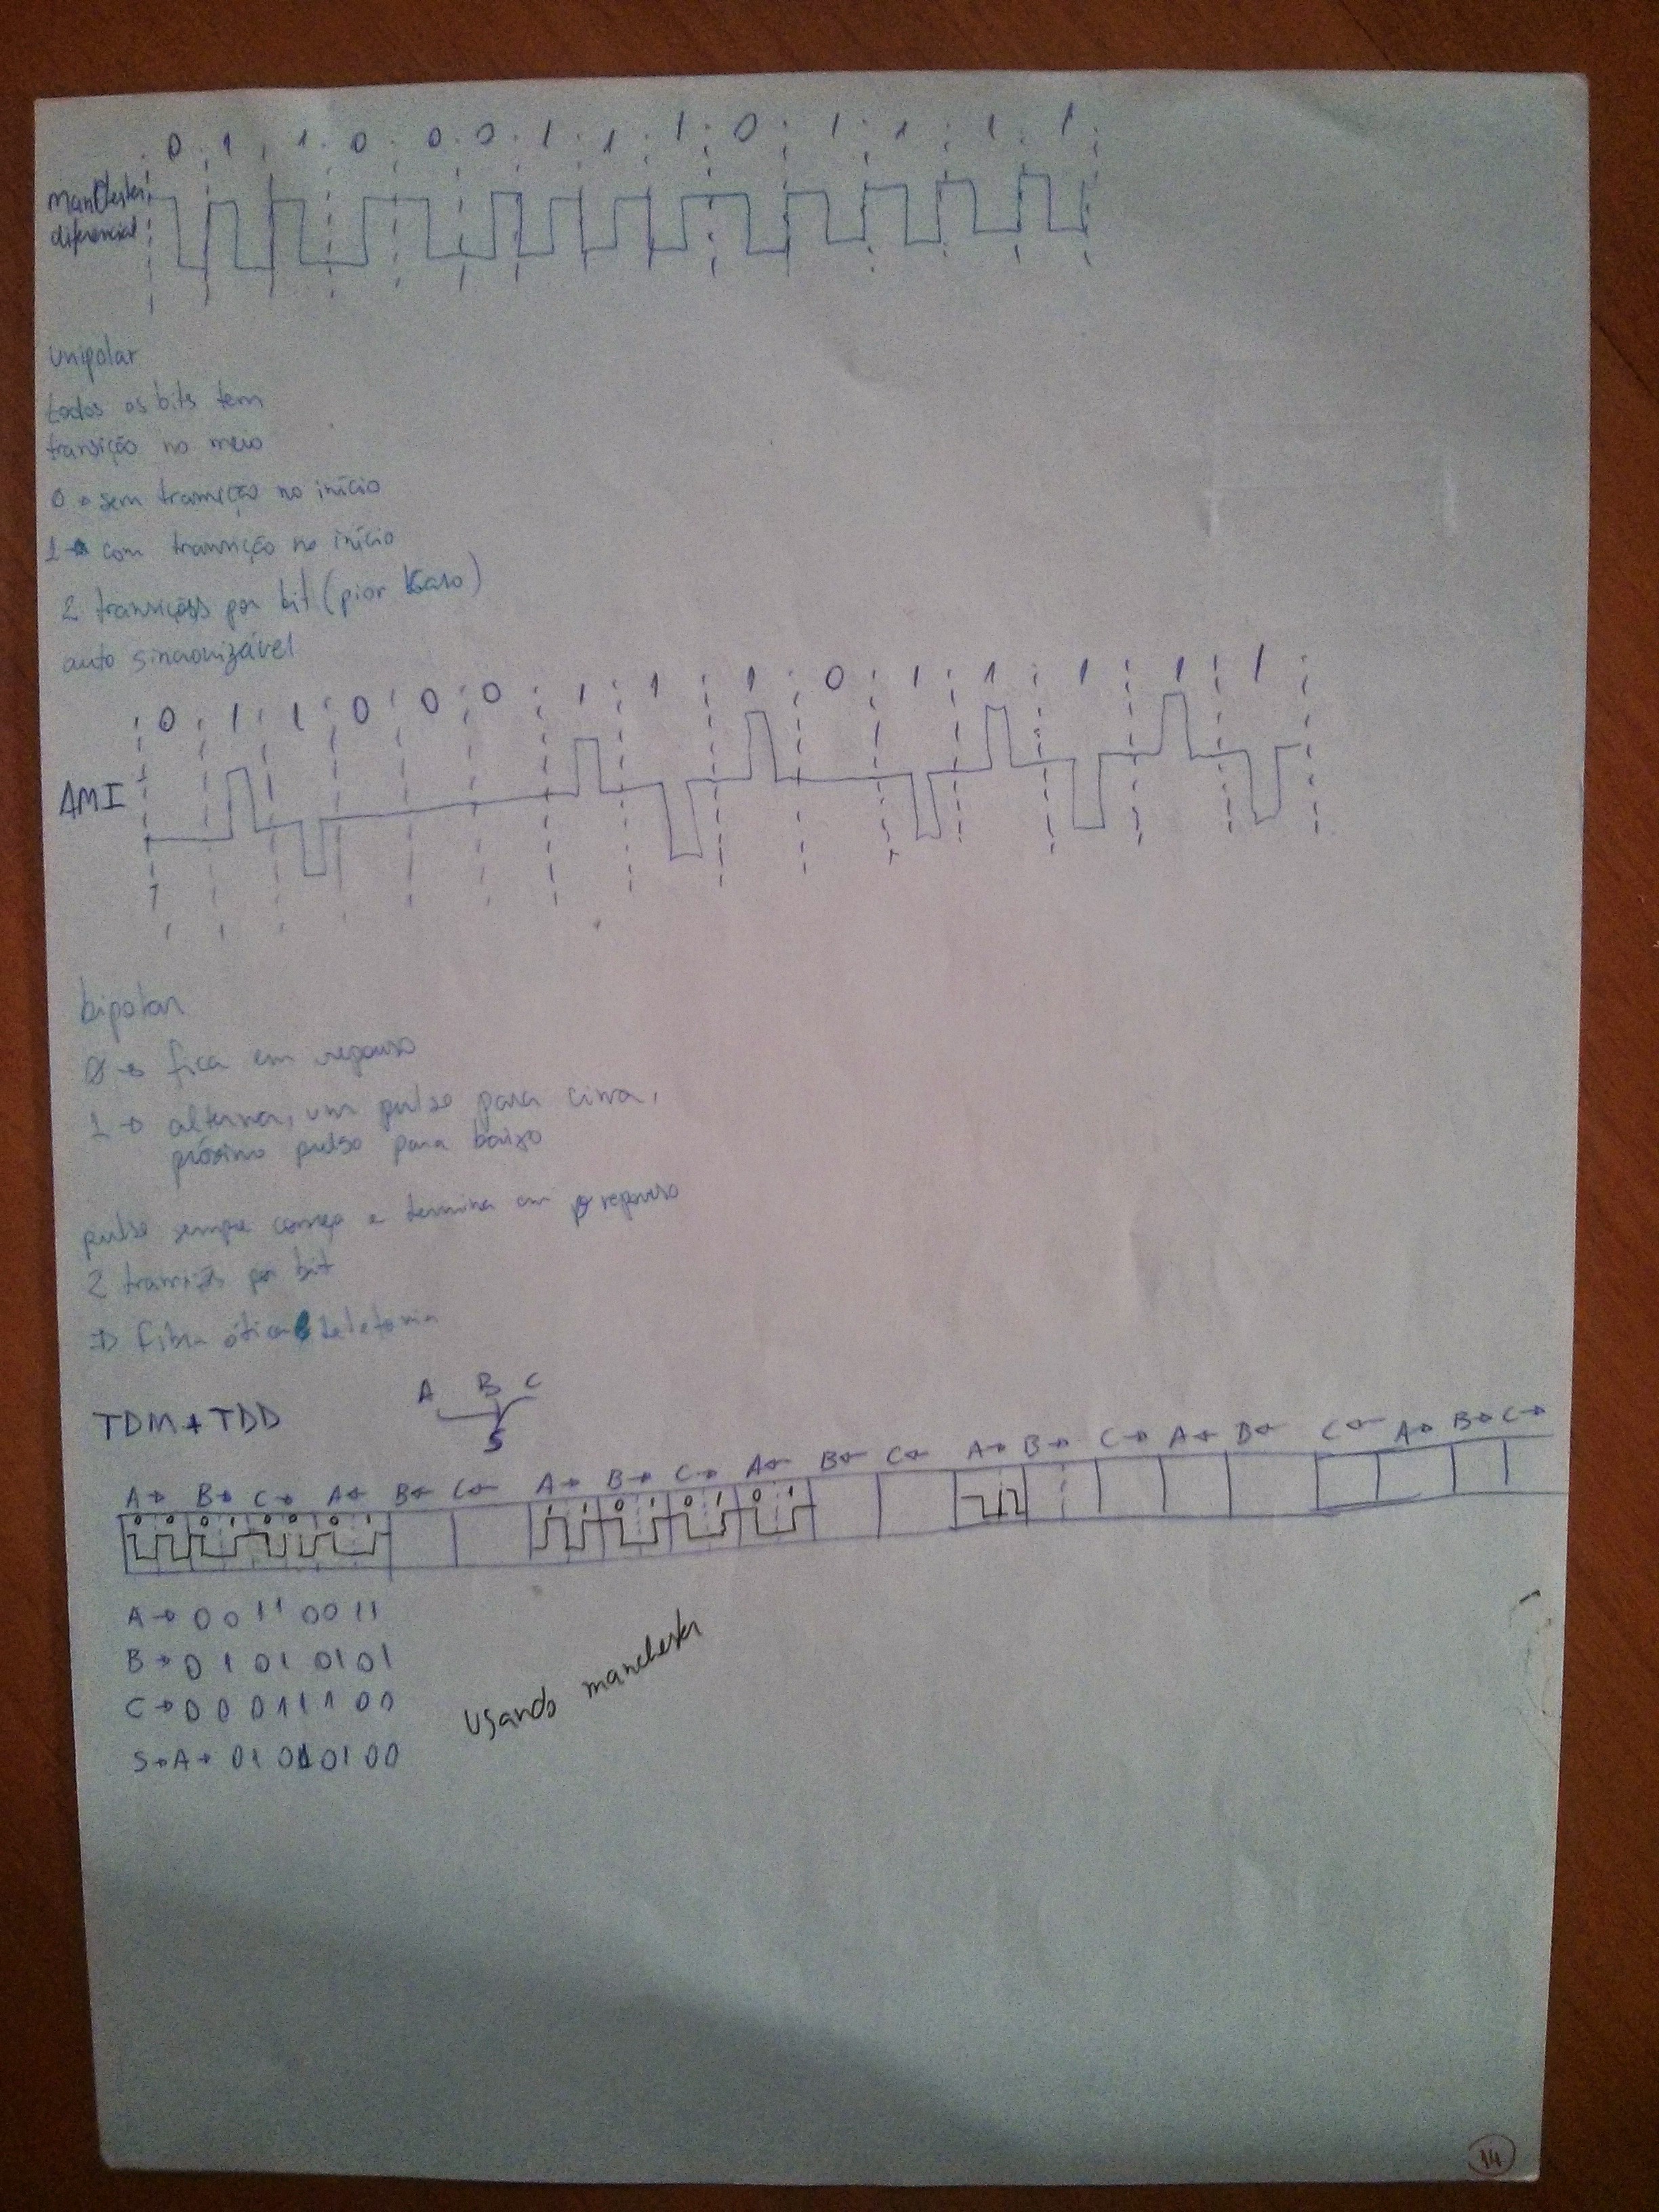 0 1 1 0 0 0 1 1 1 0 1 1 1 1
Manchester
diferencial
unipolar
todos os bits tem
transição no meio
0 → sem transição no início
1 → com transição no início
2 transições por bit (pior caso)
auto sincronizável
0 1 1 0 0 0 1 1 1 0 1 1 1 1 1
AMI
bipolar
0 → fica em repouso
1 → alterna, um pulso para cima,
próximo pulso para baixo
pulso sempre começa e termina em repouso
2 transições por bit
⇒ Fibra ótica e telefonia
TDM + TDD
A B C
S
A→ B→ C→ A← B← C← A→ B→ C→ A← B← C← A→ B→ C→ A← B← C← A→ B→ C→
0 0 0 1 0 0 0 1 1 1 0 1 0 1 0 1
A → 0 0 1 1 0 0 1 1
B → 0 1 0 1 0 1 0 1
C → 0 0 0 1 1 1 0 0
S→A→ 01 01 01 00
Usando manchester
14